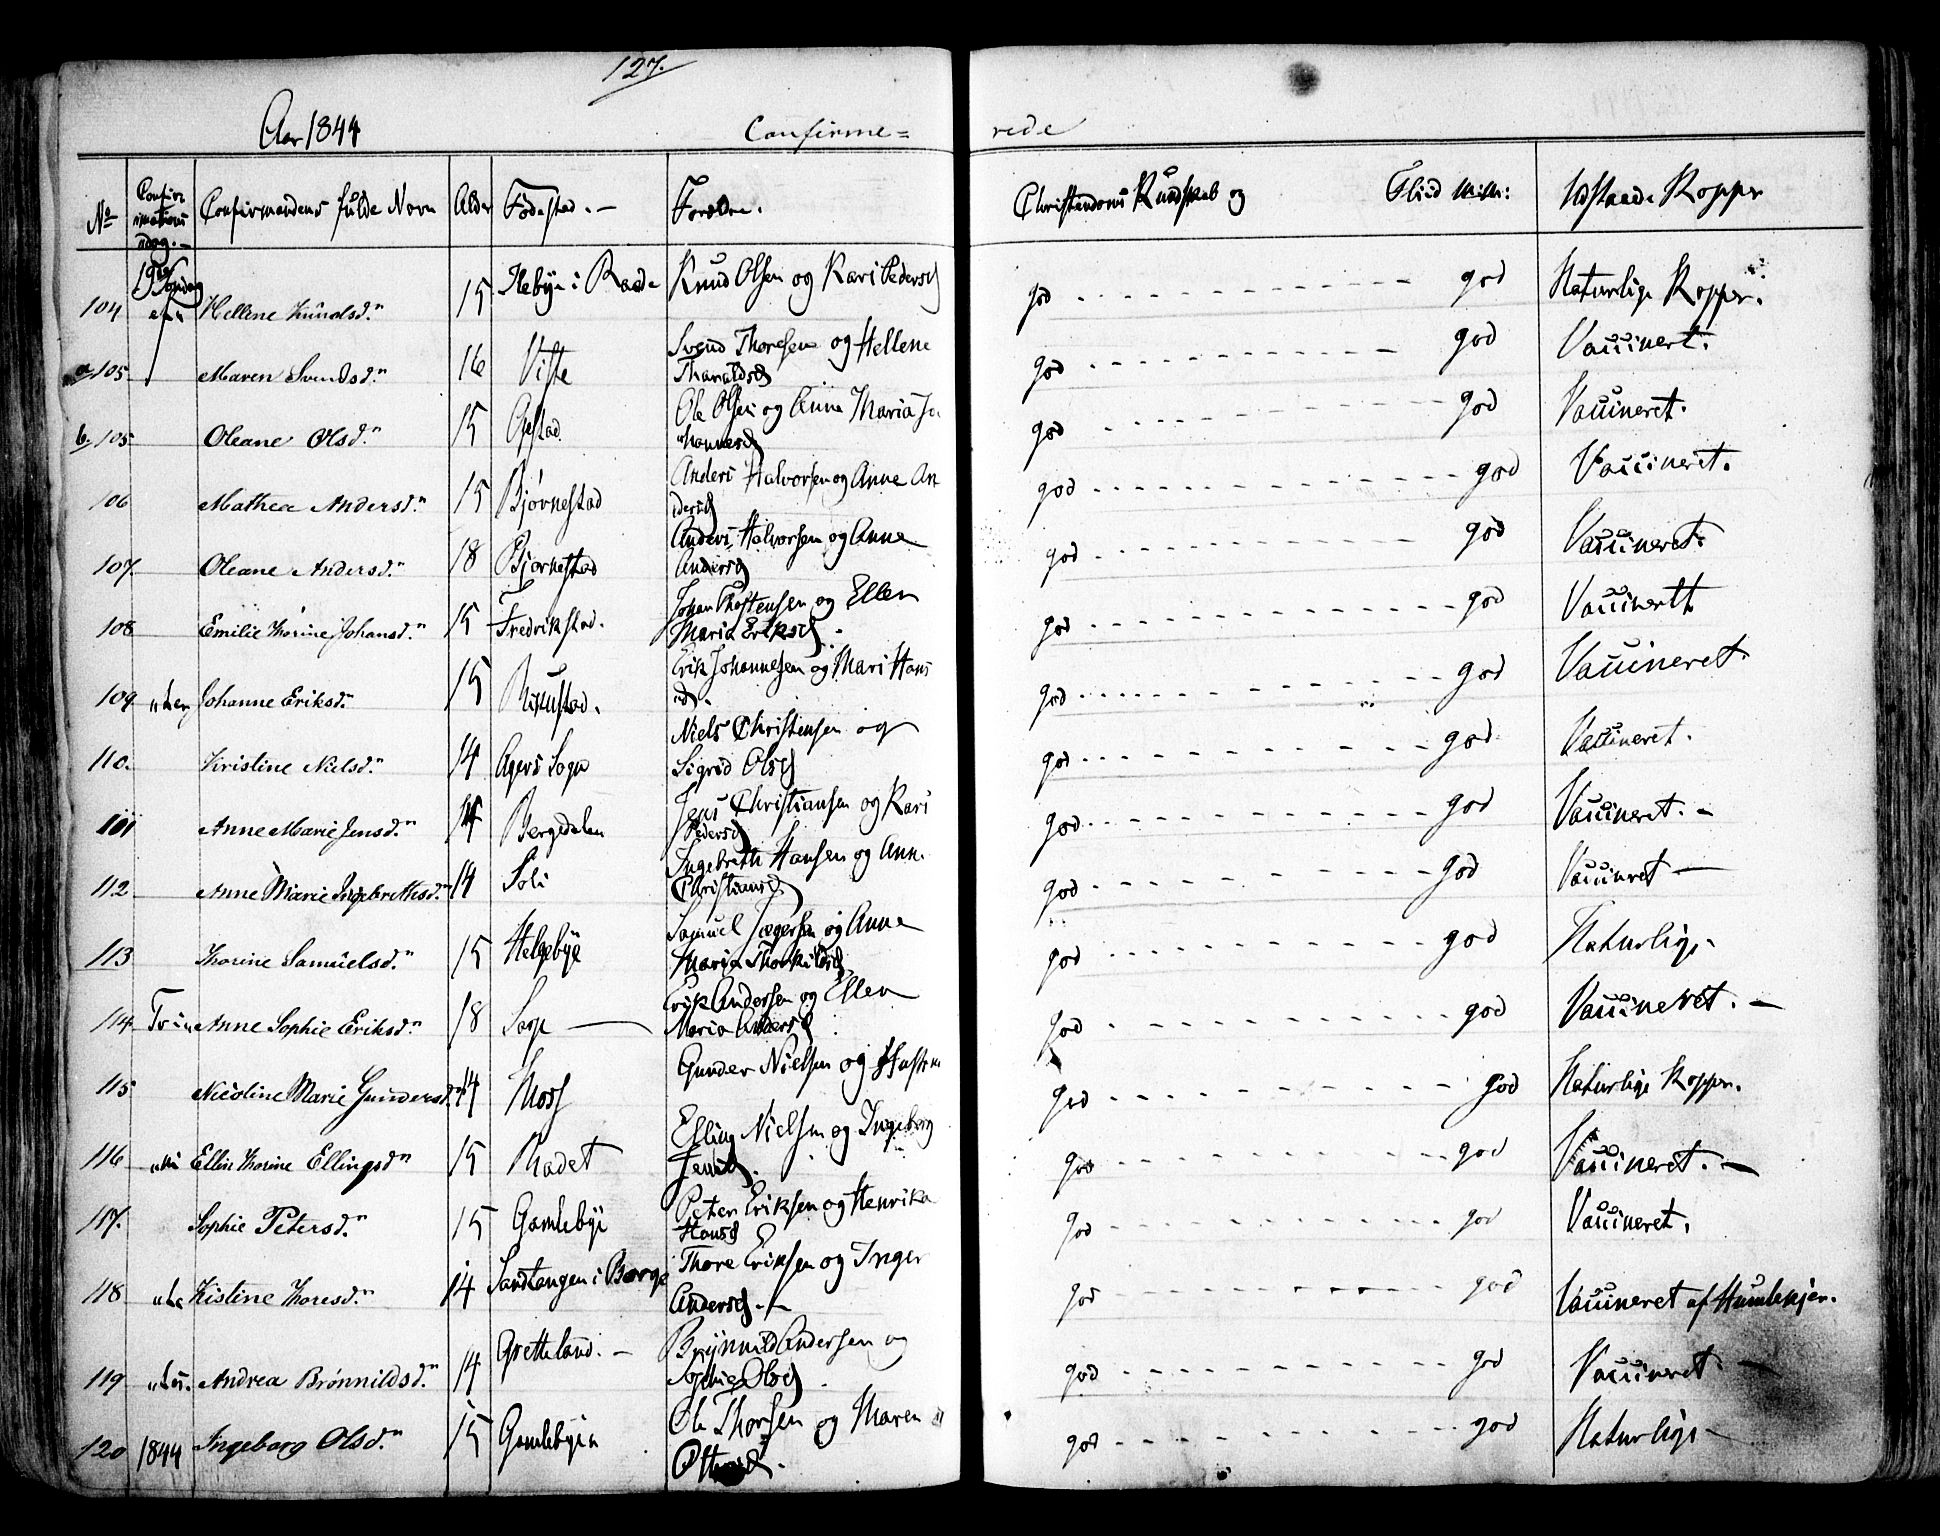 127.
Aar 1844 Confirme= rede
No Confirmations dag. Confirmandens fulde Navn Alder Fødested. Forældre. Christendoms Kundskab og Fliid Udstaaede Kopper
104 Hellene Knudsd. 15 i Raade Knud Olsen og Kari Pedersd god god Naturlige Kopper.
a 105 Maren Svendsd. 16 Viste Svend Thoresen og Hellene god god Vaccinert.
b. 105 Oleane Olsd. 15 Ole Olsen og Anne Maria Jo god god Vaccineret.
hannesd
106 Mathea Andersd. 15 Bjørnestad Anders Halvorsen og Anne An god god Vaccineret.
dersd
107. Oleane Andersd. 18 Bjørnestad Anders Halvorsen og Anne god god Vaccineret.
Andersd
108 Emilie Thorine Johansd. 15 Fredrikstad. Johan og Ellen god god Vaccinertt
Maria Eriksd.
109 Johanne Eriksd. 15 Erik Johannesen og Mari Hans god god Vaccineret.
sd.
110. Kristine Nielsd. 14 Agers Sogn Niels Christensen og god god Vaccineret.
Sigrid Olsd
111 Anne Marie Jensd. 14 Bergedalen Jens Christiansen og Kari god god Vaccineret. -
Pedersd
112 Anne Marie Ingebrethsd. 14 Soli Ingebreth Hansen og Ann. god god Vaccineret -
Christiansd
113 Thorine Samuelsd. 15 Helgebye Samuel og Anne god god Naturlige -
Maria Thorkildsd
114 Anne Sophie Eriksd. 18 Erik Andersen og Ellen god god Vaccineret. -
Maria Andersd
115 Nicoline Marie Gundersd. 14 Moss Gunder Nielsen og god god Naturlige Kopper.
116 Ellin Thorine Ellingsd. 15 Raadet Elling Nielsen og Ingeborg god god Vaccineret. -
Jensd.
117. Sophie Petersd. 15 Gamlebye Peter Eriksen og Henrika god god Vaccineret.
Hansd
118 Kistine Thoresd. 14 Sandtangen i Borge Thore Eriksen og Inger god god Vaccineret af Humlekjær.
Andersd. -
119 Andrea Brønnildsd. 14 Grotteland. - Brynnild Andersen og god god Vaccineret. -
Sophie Olsd
120 1844 Ingeborg Olsd. 15 Gamlebyen Ole Thorsen og Maren god god Naturlige -